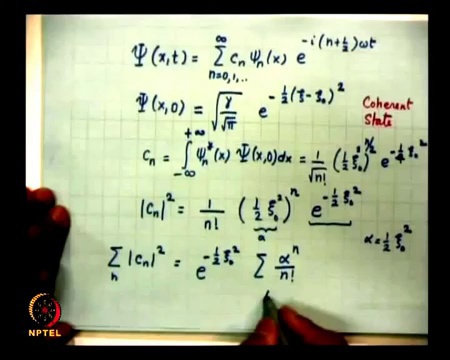 Ψ(x,t) = ∑_{n=0,1,..}^{∞} c_n ψ_n(x) e^{-i(n+½)ωt}
Ψ(x,0) = √(γ/√π) e^{-½(ξ-ξ₀)²}
Coherent
State
c_n = ∫_{-∞}^{+∞} ψ_n*(x) Ψ(x,0)dx = 1/√n! (½ξ₀²)^{n/2} e^{-¼ξ₀²}
|c_n|² = 1/n! (½ξ₀²)^n e^{-½ξ₀²}
α = ½ξ₀²
∑_n |c_n|² = e^{-½ξ₀²} ∑ αⁿ/n!
NPTEL